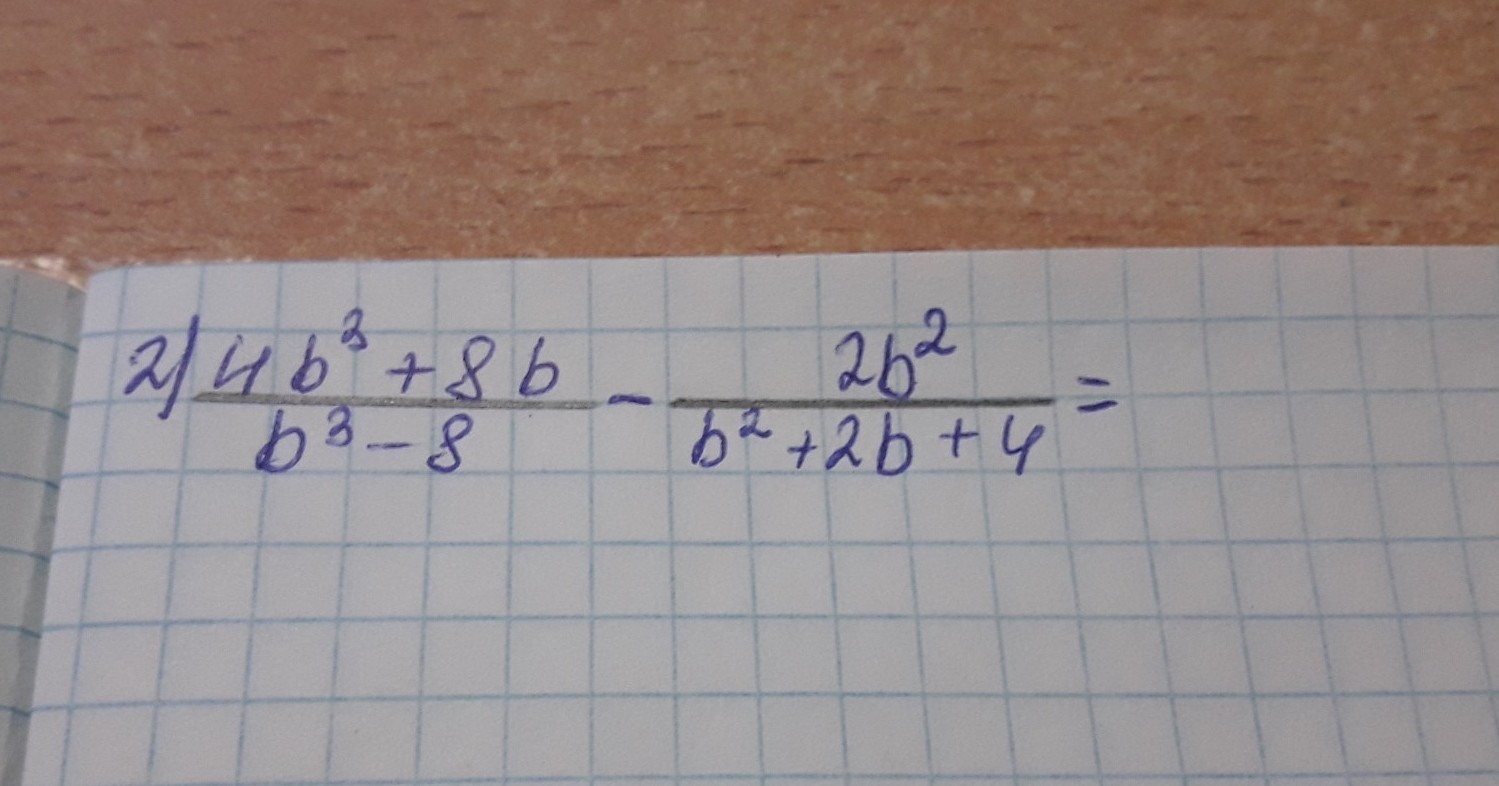 2) \frac{4b^3+8b}{b^3-8} - \frac{2b^2}{b^2+2b+4} =